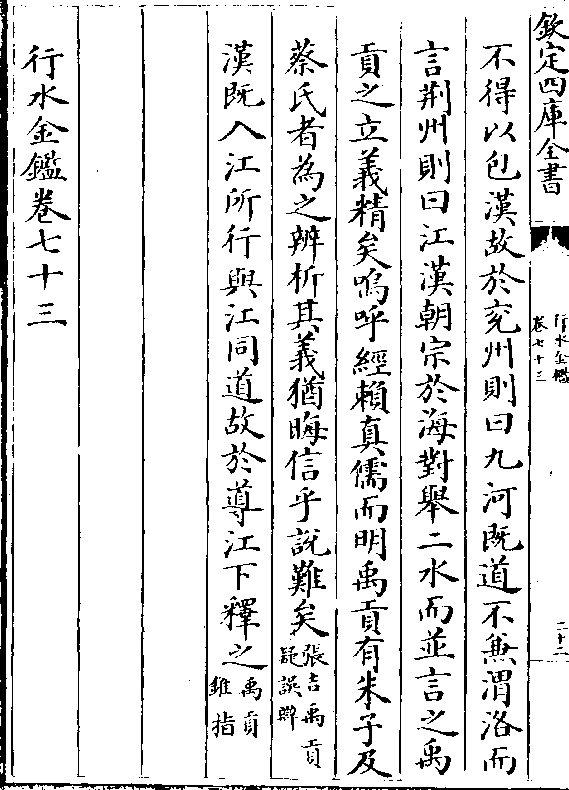 欽定四庫全書
行水金鑑
卷七十三
二十二
不得以包漢故於兖州則曰九河既道不兼渭洛而
言荆州則曰江漢朝宗於海對舉二水而並言之禹
貢之立義精矣嗚呼經頼真儒而明禹貢有朱子及
蔡氏者為之辨析其義猶晦信乎說難矣張吉禹貢
疑誤辨
漢既入江所行與江同道故於導江下釋之禹貢
錐指
行水金鑑卷七十三